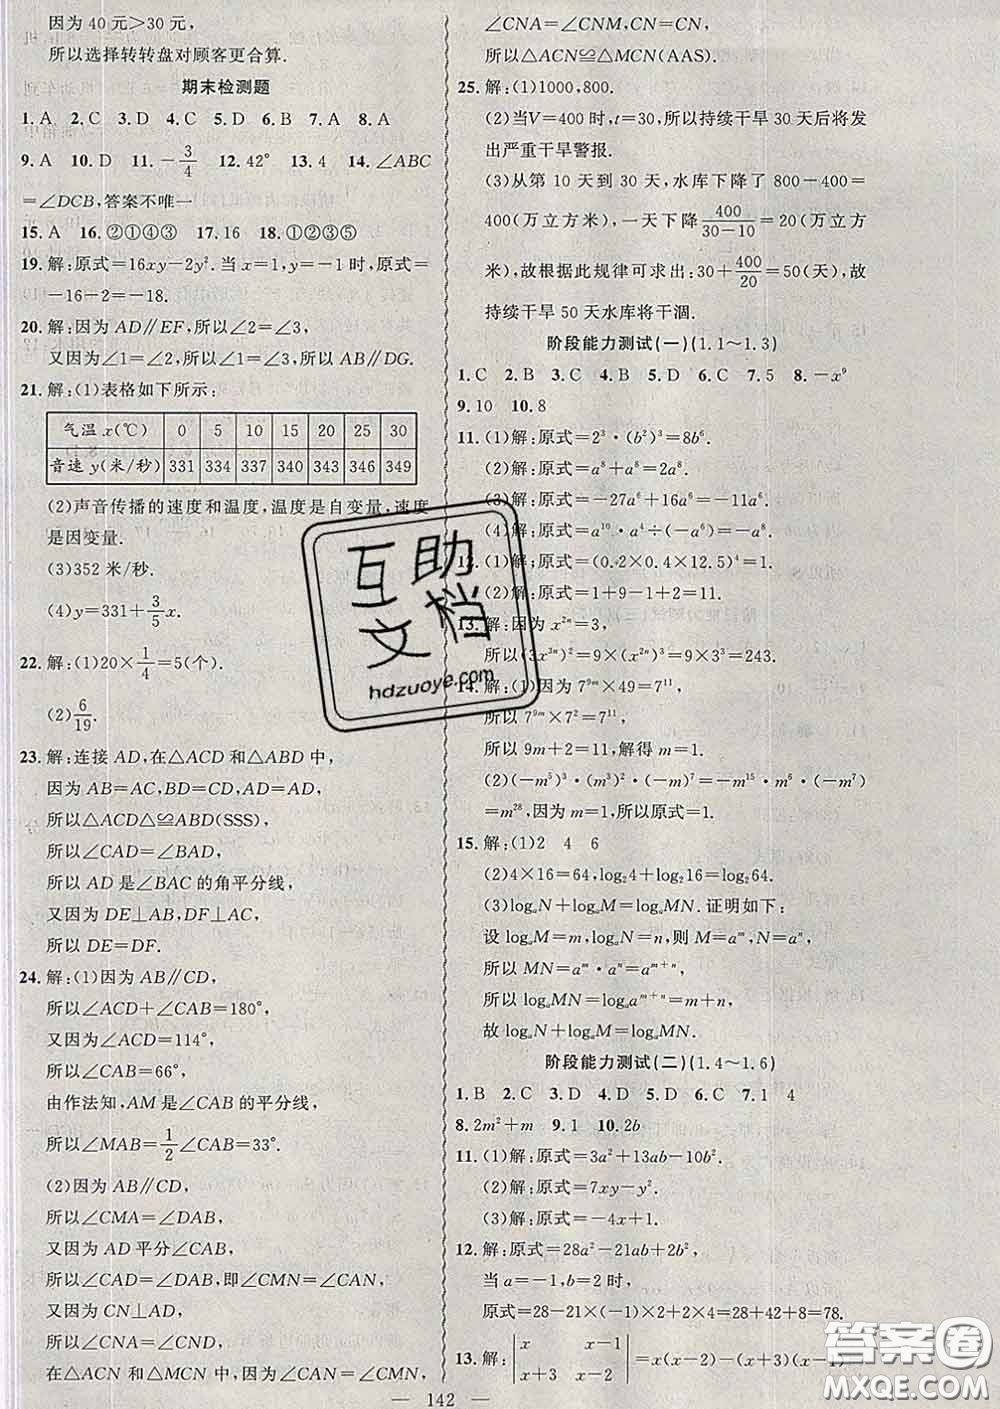 因为 40 元>30 元,
所以选择转转盘对顾客更合算.
期末检测题
1. A 2. C 3. D 4. C 5. D 6. B 7. A 8. A
9. A 10. D 11. -3/4 12. 42° 13. 4 14. ∠ABC
=∠DCB,答案不唯一
15. A 16. ②①④③ 17. 16 18. ①②③⑤
19. 解:原式=16xy-2y². 当 x=1,y=-1 时,原式=
-16-2=-18.
20. 解:因为 AD∥EF,所以∠2=∠3,
又因为∠1=∠2,所以∠1=∠3,所以 AB∥DG.
21. 解:(1)表格如下所示:
气温 x(℃) 0 5 10 15 20 25 30
音速 y(米/秒) 331 334 337 340 343 346 349
(2)声音传播的速度和温度,温度是自变量,速度
是因变量.
(3)352 米/秒.
(4)y=331+3/5x.
22. 解:(1)20×1/4=5(个).
(2)6/19.
23. 解:连接 AD,在△ACD 和△ABD 中,
因为 AB=AC,BD=CD,AD=AD,
所以△ACD△≌ABD(SSS),
所以∠CAD=∠BAD,
所以 AD 是∠BAC 的角平分线,
又因为 DE⊥AB,DF⊥AC,
所以 DE=DF.
24. 解:(1)因为 AB∥CD,
所以∠ACD+∠CAB=180°,
又因为∠ACD=114°,
所以∠CAB=66°,
由作法知,AM 是∠CAB 的平分线,
所以∠MAB=1/2∠CAB=33°.
(2)因为 AB∥CD,
所以∠CMA=∠DAB,
又因为 AD 平分∠CAB,
所以∠CAD=∠DAB,即∠CMN=∠CAN,
又因为 CN⊥AD,
所以∠CNA=∠CND,
在△ACN 和△MCN 中,∠CAN=∠CMN,
∠CNA=∠CNM,CN=CN,
所以△ACN≌△MCN(AAS).
25. 解:(1)1000,800.
(2)当V=400 时,t=30,所以持续干旱 30 天后将发
出严重干旱警报.
(3)从第 10 天到 30 天,水库下降了 800-400=
400(万立方米),一天下降 400/(30-10)=20(万立方
米),故根据此规律可求出:30+400/20=50(天),故
持续干旱 50 天水库将干涸.
阶段能力测试(一)(1.1~1.3)
1. C 2. B 3. C 4. B 5. D 6. C 7. 5 8. -x⁹
9. 10 10. 8
11. (1)解:原式=2³·(b²)³=8b⁶.
(2)解:原式=a⁸+a⁸=2a⁸.
(3)解:原式=-27a⁶+16a⁶=-11a⁶.
(4)解:原式=a¹⁰·a⁴÷(-a⁶)=-a⁸.
12. (1)解:原式=(0.2×0.4×12.5)⁴=1.
(2)解:原式=1+9-1+2=11.
13. 解:因为 x²ⁿ=3,
所以(3x³ⁿ)²=9×(x²ⁿ)³=9×3³=243.
14. 解:(1)因为 7⁹ᵐ×49=7¹¹,
所以 7⁹ᵐ×7²=7¹¹,
所以 9m+2=11,解得 m=1.
(2)(-m⁵)³·(m³)²·(-m⁷)=-m¹⁵·m⁶·(-m⁷)
=m²⁸,因为 m=1,所以原式=1.
15. 解:(1)2 4 6
(2)4×16=64,log₂4+log₂16=log₂64.
(3)logₐN+logₐM=logₐMN. 证明如下:
设 logₐM=m,logₐN=n,则 M=aᵐ,N=aⁿ,
所以 MN=aᵐ·aⁿ=aᵐ⁺ⁿ,
所以 logₐMN=logₐaᵐ⁺ⁿ=m+n,
故 logₐN+logₐM=logₐMN.
阶段能力测试(二)(1.4~1.6)
1. B 2. C 3. D 4. D 5. D 6. C 7. 1 4
8. 2m²+m 9. 1 10. 2b
11. (1)解:原式=3a²+13ab-10b².
(2)解:原式=7xy-y².
(3)解:原式=-4x+1.
12. 解:原式=28a²-21ab+2b²,
当 a=-1,b=2 时,
原式=28-21×(-1)×2+2×4=28+42+8=78.
13. 解:|x x-1
x+3 x-3|=x(x-3)-(x+3)(x-1)
— 142 —
互助
文档
hdzuoye.com
答案圈
MXQE.COM